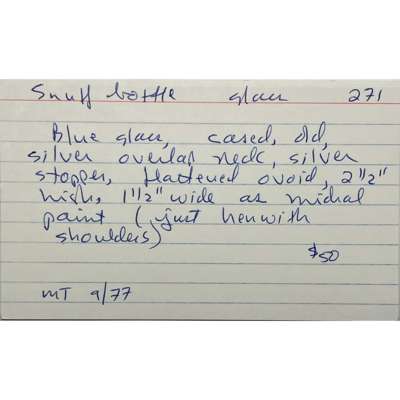 Snuff bottle glass 271
Blue glass, cased, old,
silver overlap neck, silver
stopper, flattened ovoid, 2 1/2"
high, 1 1/2" wide as midial
point (just
shoulders)
$50
MT 9/77